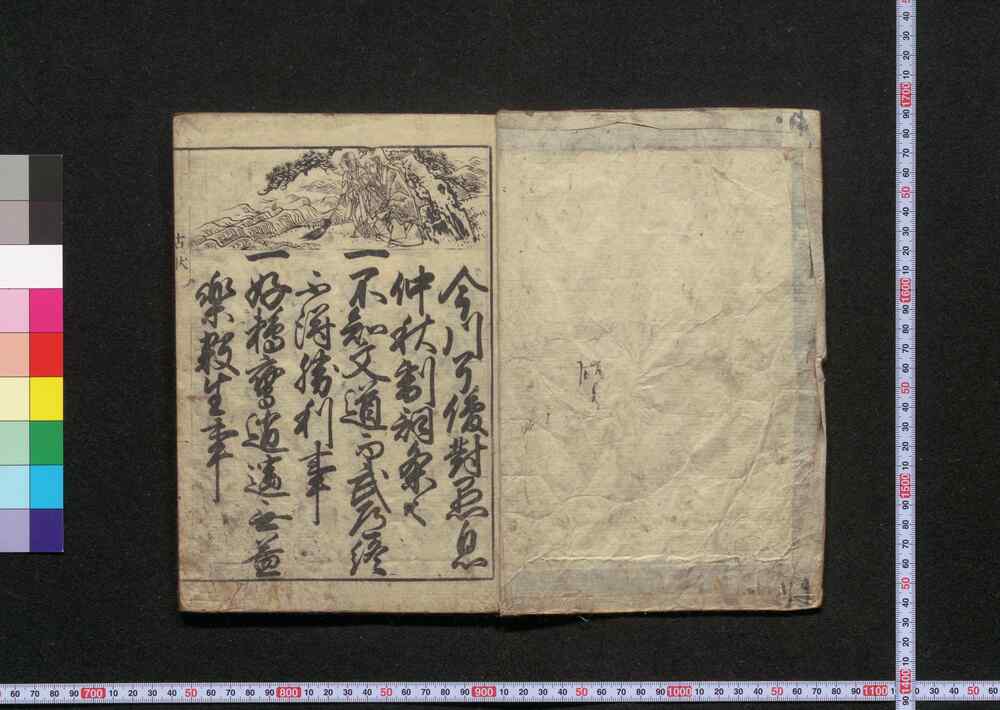 今川了俊對愚息
仲秋制詞条々
一不知文道而武道終
不得勝利事
一好鵜鷹逍遥無益
楽殺生事
古状